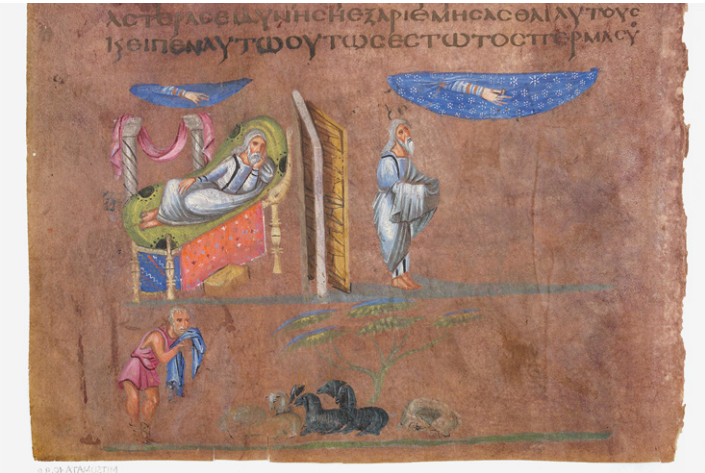 ΑϹΤΕΡΑϹΕΙΔΥΝΗϹΗΕΞΑΡΙΘΜΗϹΑϹΘΑΙΑΥΤΟΥϹ
ΕΙΠΕΝΑΥΤΩΟΥΤΩϹΕϹΤΩΤΟϹΠΕΡΜΑϹΟΥ